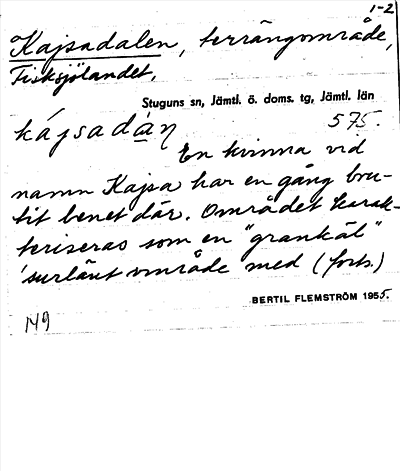 1-2
Kajsadalen, terrängområde,
Fisksjölandet,
Stuguns sn, Jämtl. ö. doms. tg, Jämtl. län
kájsadàṇ 575.
En kvinna vid
namn Kajsa har en gång bru-
tit benet där. Området karak-
teriseras som en "grankäl"
'surlänt område med (forts.)
BERTIL FLEMSTRÖM 1955.
149